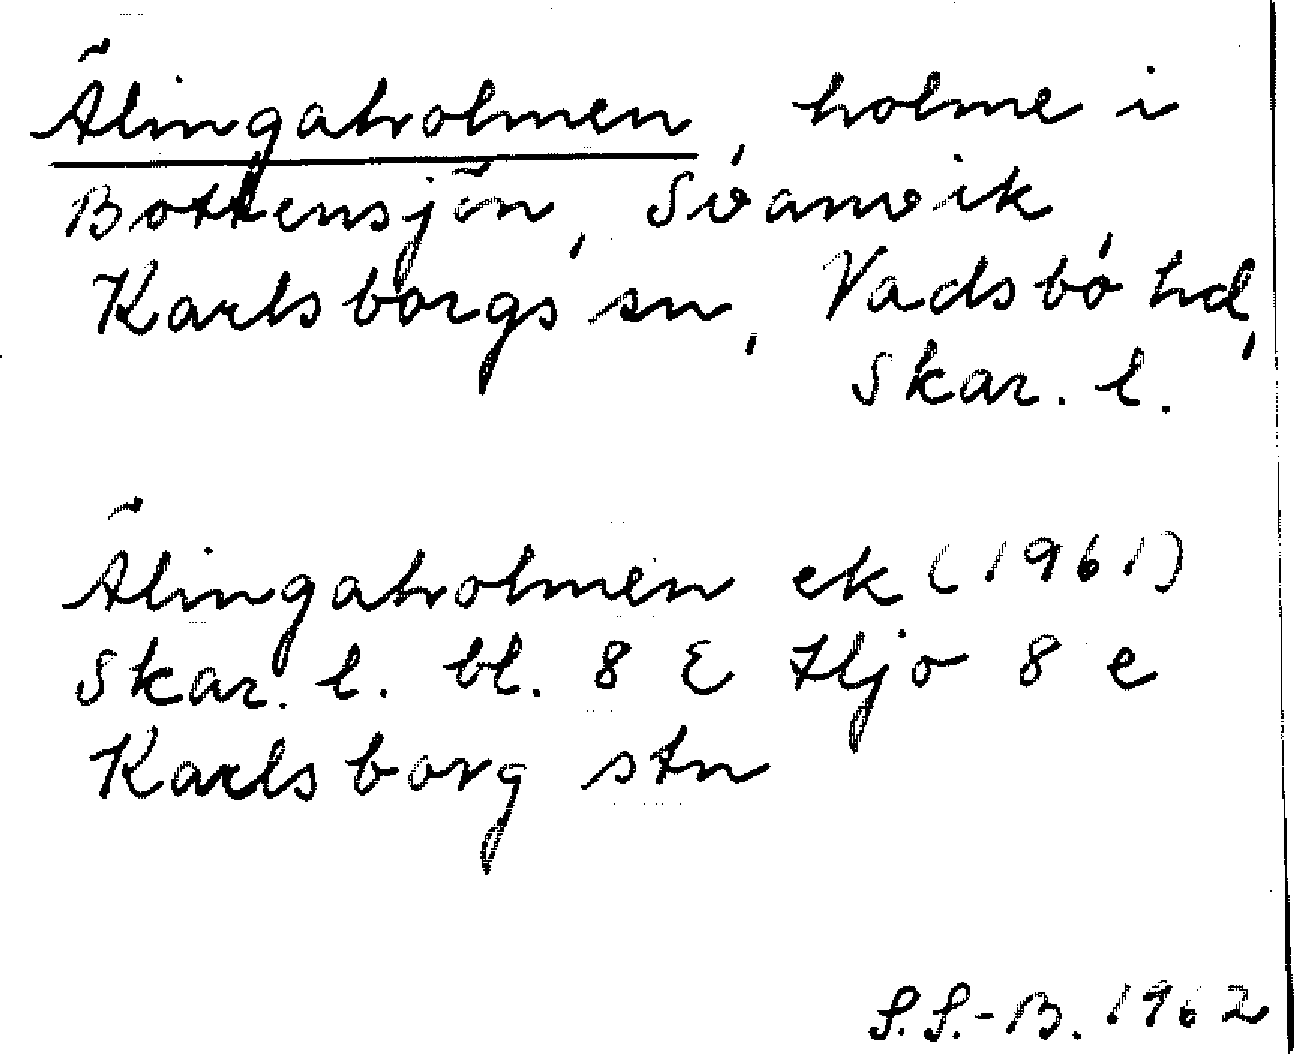 Älingaholmen, holme i
Bottensjön, Svanvik,
Karlsborgs sn, Vadsbo hd,
Skar. l.
Älingaholmen ek (1961)
Skar. l. bl. 8 E Hjo 8 e
Karlsborg stn
S.S.-B. 1962